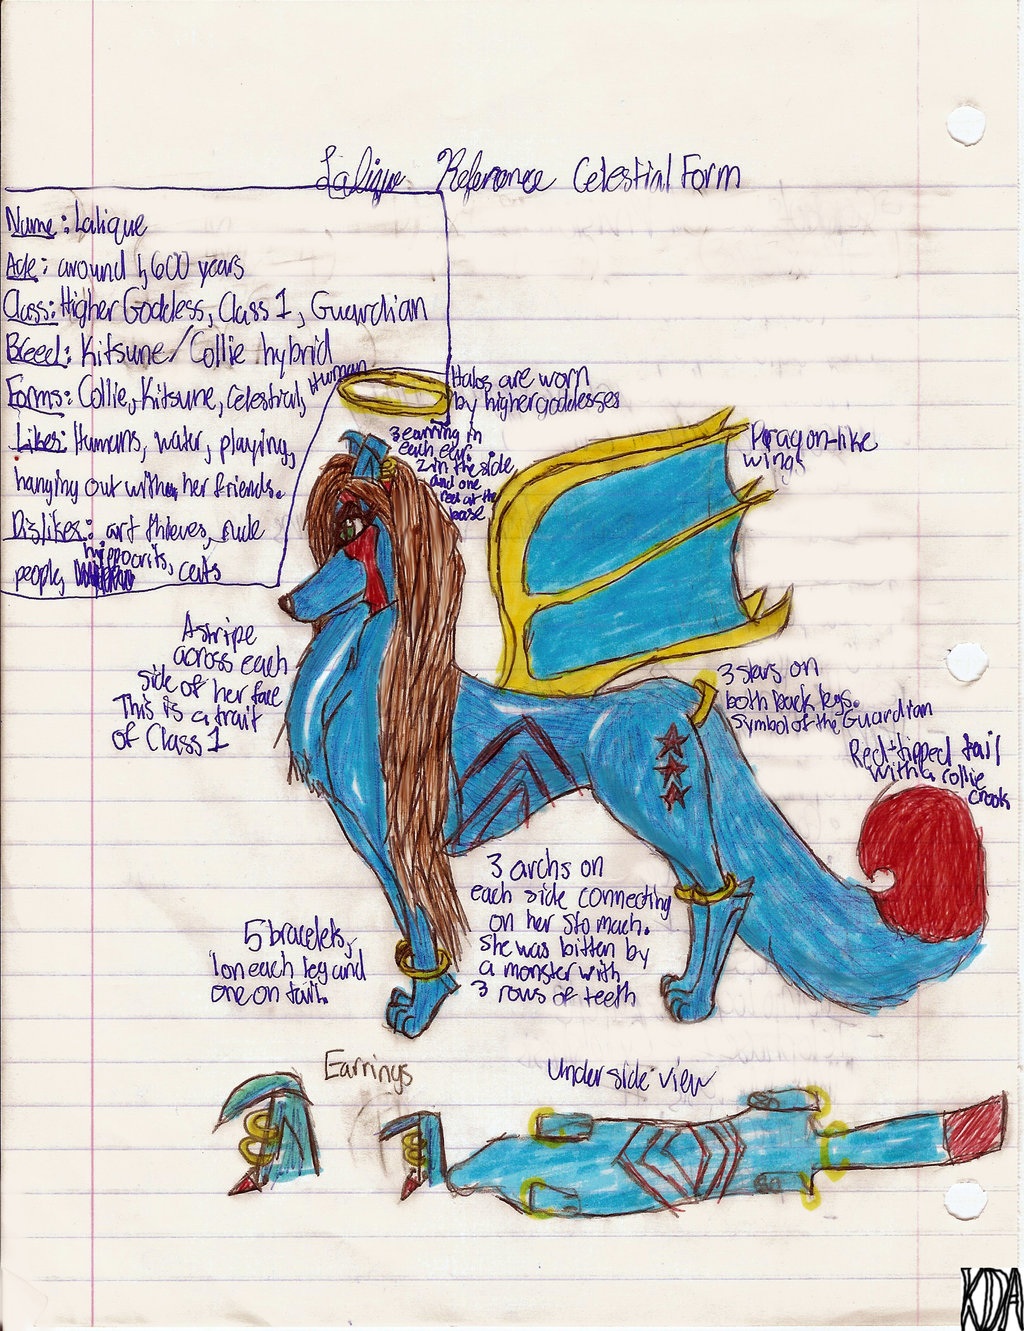 Lalique Reference Celestial Form
Name: Lalique
Age: around 1,600 years
Class: Higher Goddess, Class 1, Guardian
Breed: Kitsune/Collie hybrid
Forms: Collie, Kitsune, Celestial, Human
Likes: Humans, water, playing,
hanging out with her friends.
Dislikes: art thieves, rude
people, hippocrits, cats
Halos are worn
by higher goddesses
3 earring in
each ear.
2 in the side
and one
red at the
base
Dragon-like
wings
A stripe
across each
side of her face
This is a trait
of Class 1
3 stars on
both back legs.
Symbol of the Guardian
Red-tipped tail
with a collie
crook
3 archs on
each side connecting
on her stomach.
She was bitten by
a monster with
3 rows of teeth
5 bracelets,
1 on each leg and
one on tail.
Earrings
Underside view
KDA